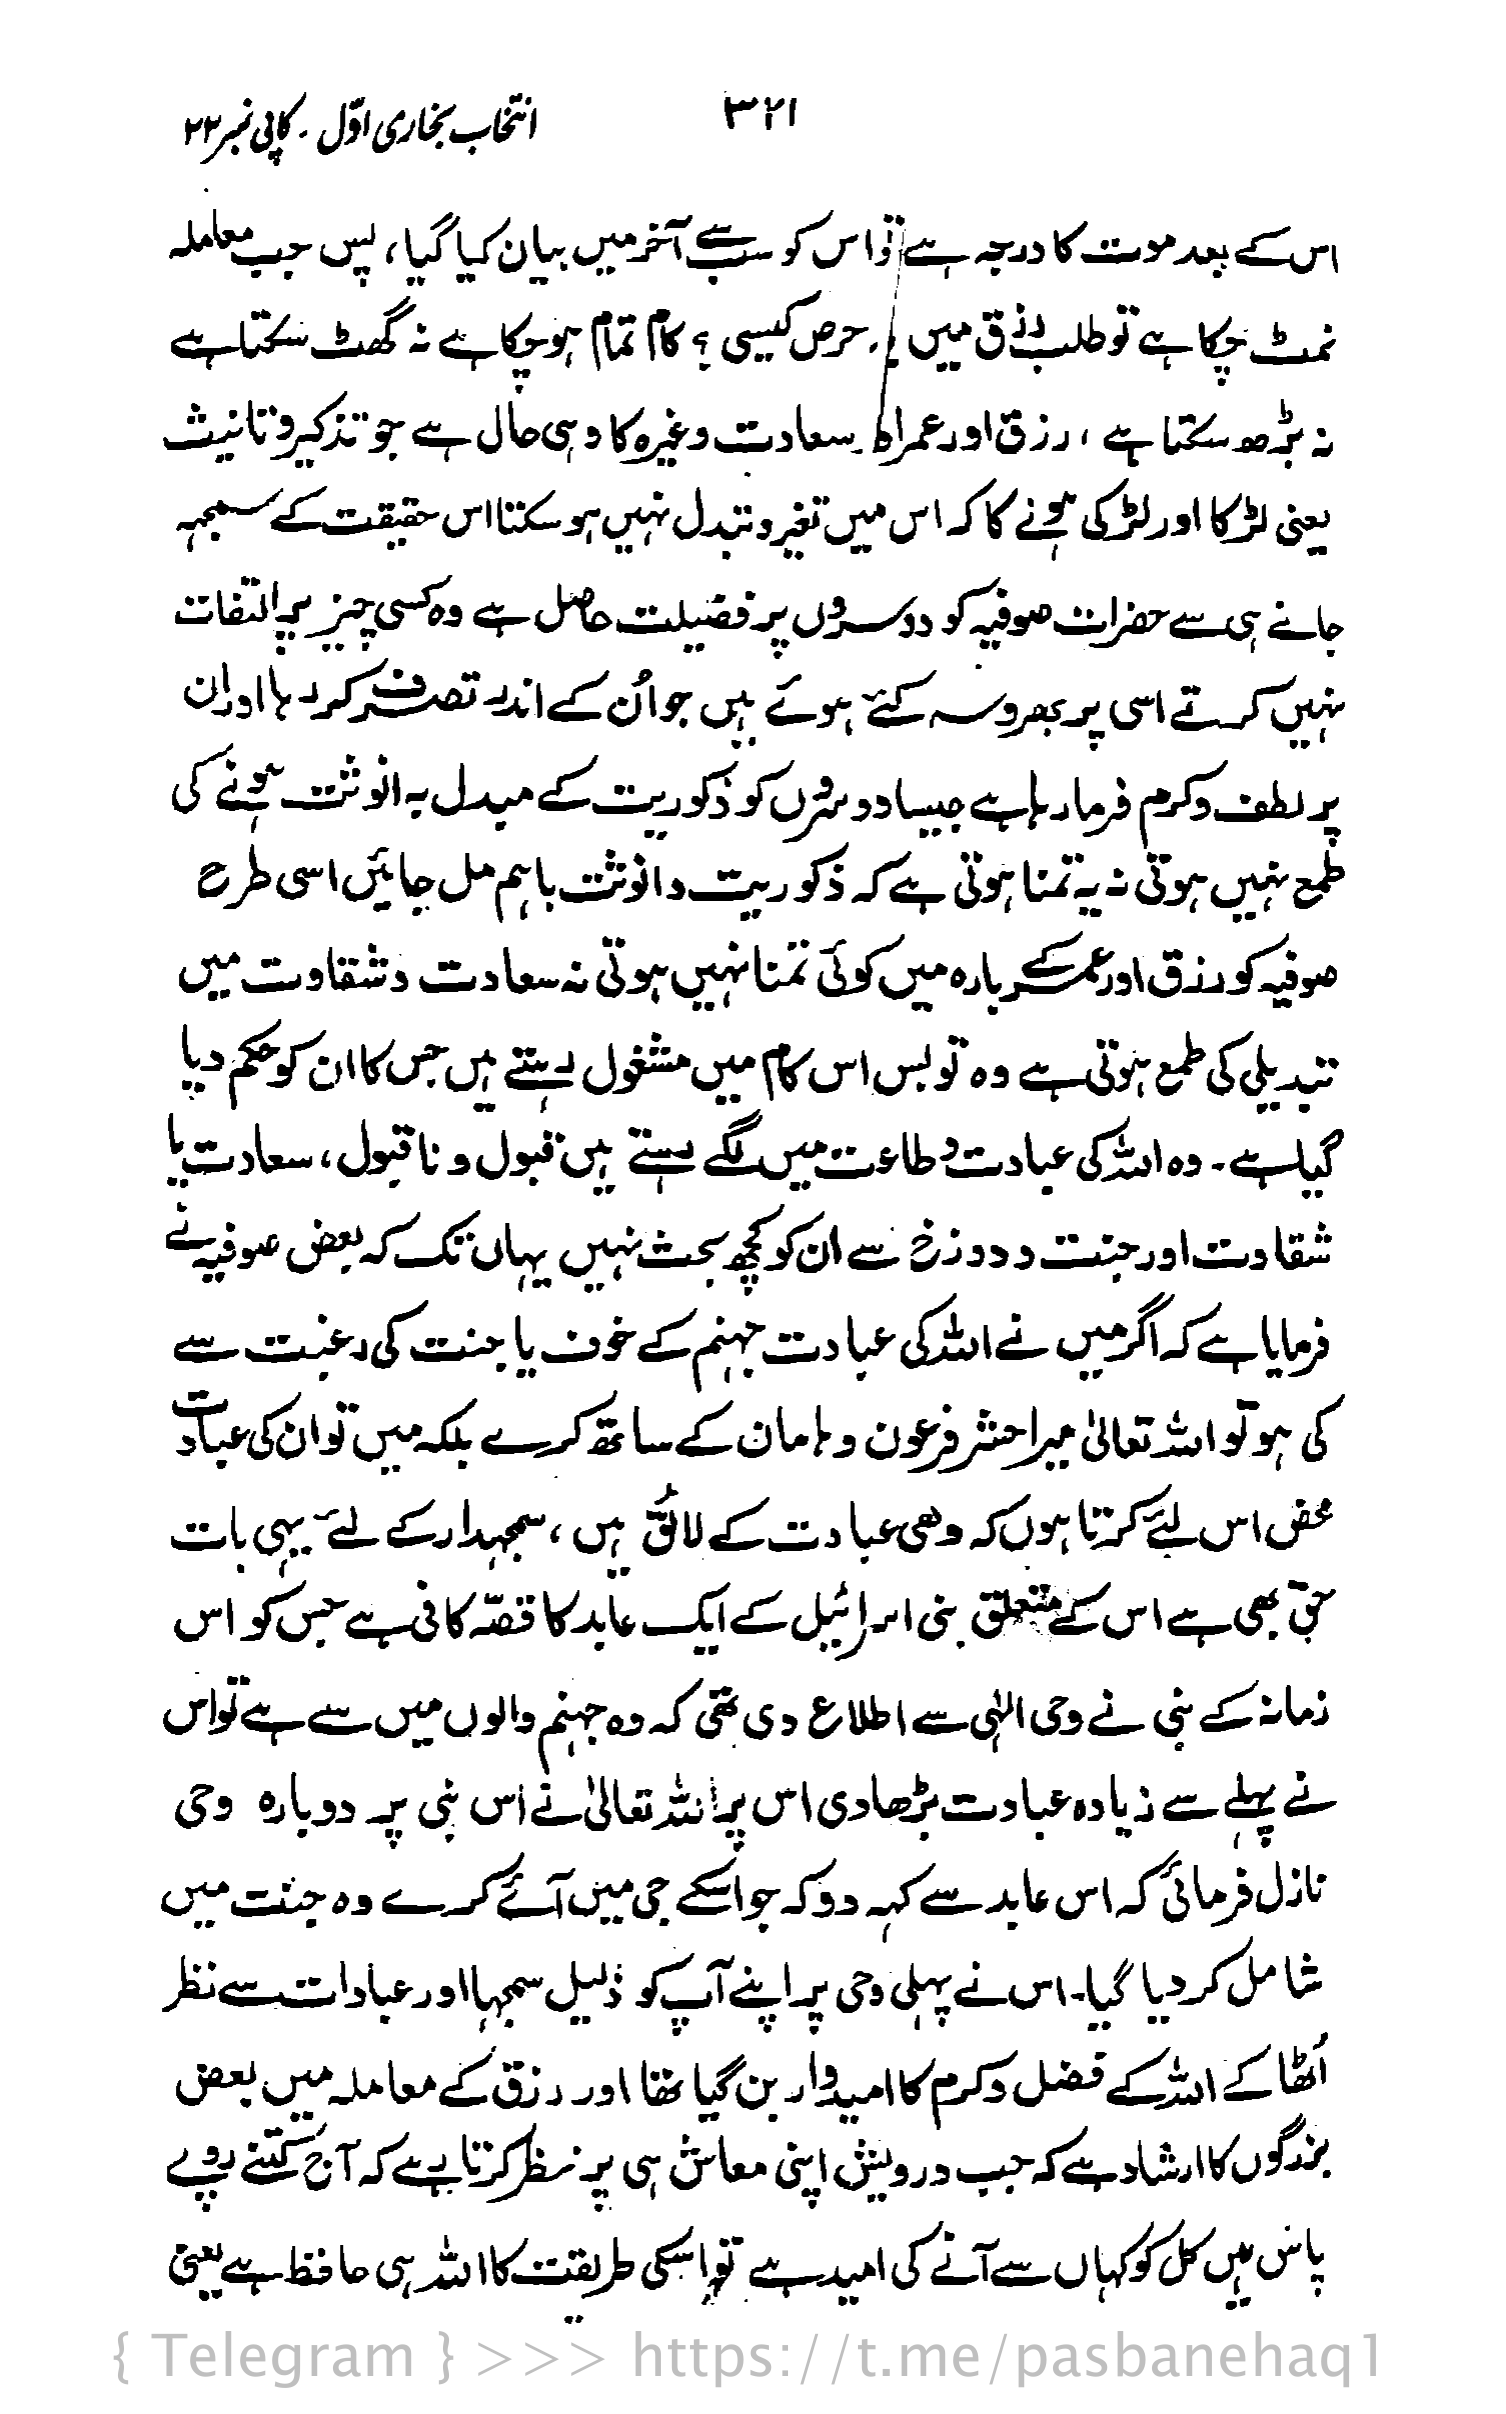 ۳۲۱
انتخاب بخاری اوّل ۔ کاپی نمبر ۲۲
اس کے بعد موت کا درجہ ہے تو اس کو سب سے آخر میں بیان کیا گیا، پس جب معاملہ
نمٹ چکا ہے تو طلب رزق میں یہ حرص کیسی ؟ کام تمام ہو چکا ہے نہ گھٹ سکتا ہے
نہ بڑھ سکتا ہے ، رزق اور عمر اور سعادت وغیرہ کا وہی حال ہے جو تذکیر و تانیث
یعنی لڑکا اور لڑکی ہونے کا کہ اس میں تغیر و تبدل نہیں ہو سکتا اس حقیقت کے سمجہہ
جانے ہی سے حضرات صوفیہ کو دوسروں پر فضیلت حاصل ہے وہ کسی چیز پر التفات
نہیں کرتے اسی پر بھروسہ کئے ہوئے ہیں جو اُن کے اندر تصرف کر رہا اور ان
پر لطف و کرم فرما رہا ہے جیسا دوسروں کو ذکوریت کے مبدل بہ انوثت ہونے کی
طمع نہیں ہوتی نہ یہ تمنا ہوتی ہے کہ ذکوریت و انوثت باہم مل جائیں اسی طرح
صوفیہ کو رزق اور عمر کے بارہ میں کوئی تمنا نہیں ہوتی نہ سعادت و شقاوت میں
تبدیلی کی طمع ہوتی ہے وہ تو بس اس کام میں مشغول رہتے ہیں جس کا ان کو حکم دیا
گیا ہے ۔ وہ اللہ کی عبادت و طاعت میں لگے رہتے ہیں قبول و ناقبول، سعادت یا
شقاوت اور جنت و دوزخ سے ان کو کچھ بحث نہیں یہاں تک کہ بعض صوفیہ نے
فرمایا ہے کہ اگر میں نے اللہ کی عبادت جہنم کے خوف یا جنت کی رغبت سے
کی ہو تو اللہ تعالیٰ میرا حشر فرعون و ہامان کے ساتھ کرے بلکہ میں تو ان کی عبادت
محض اس لئے کرتا ہوں کہ وہی عبادت کے لائق ہیں ، سمجہدار کے لئے یہی بات
حق بھی ہے اس کے متعلق بنی اسرائیل کے ایک عابد کا قصّہ کافی ہے جس کو اس
زمانہ کے نبی نے وحی الٰہی سے اطلاع دی تھی کہ وہ جہنم والوں میں سے ہے تو اس
نے پہلے سے زیادہ عبادت بڑھا دی اس پر اللہ تعالیٰ نے اس نبی پر دوبارہ وحی
نازل فرمائی کہ اس عابد سے کہہ دو کہ جو اسکے جی میں آئے کرے وہ جنت میں
شامل کر دیا گیا۔ اس نے پہلی وحی پر اپنے آپ کو ذلیل سمجہا اور عبادات سے نظر
اُٹھا کے اللہ کے فضل و کرم کا امیدوار بن گیا تھا اور رزق کے معاملہ میں بعض
بزرگوں کا ارشاد ہے کہ جب درویش اپنی معاش ہی پر نظر کرتا رہے کہ آج کتنے روپے
پاس ہیں کل کو کہاں سے آنے کی امید ہے تو اسکی طریقت کا اللہ ہی حافظ ہے یعنی
{ Telegram } >>> https://t.me/pasbanehaq1